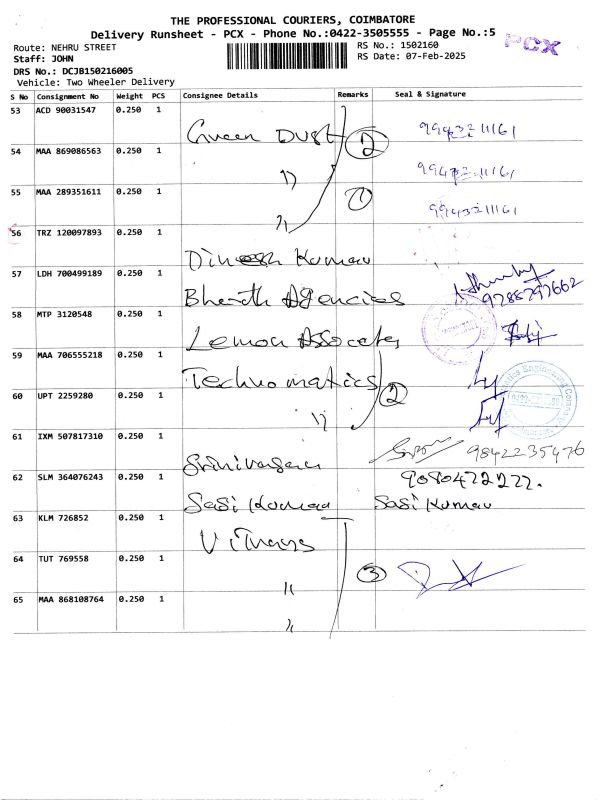 THE PROFESSIONAL COURIERS, COIMBATORE
Delivery Runsheet - PCX - Phone No.:0422-3505555 - Page No.:5
PCX
Route: NEHRU STREET
RS No.: 1502160
Staff: JOHN
RS Date: 07-Feb-2025
DRS No.: DCJB150216005
Vehicle: Two Wheeler Delivery
S No Consignment No Weight PCS Consignee Details Remarks Seal & Signature
53 ACD 90031547 0.250 1 Green Dust 2 9943211161
54 MAA 869086563 0.250 1 " 9943211161
55 MAA 289351611 0.250 1 " 1 9943211161
56 TRZ 120097893 0.250 1 Dinesh Kumar
57 LDH 700499189 0.250 1 Bharath Agencies 9788297662
58 MTP 3120548 0.250 1 Lemon Assocates
59 MAA 706555218 0.250 1 Technomatics 2
60 UPT 2259280 0.250 1 "
61 IXM 507817310 0.250 1 Srinivasan 9842235476
62 SLM 364076243 0.250 1 Sasi Kumar 9080472277. Sasi Kumar
63 KLM 726852 0.250 1
64 TUT 769558 0.250 1 " 3
65 MAA 868108764 0.250 1 "